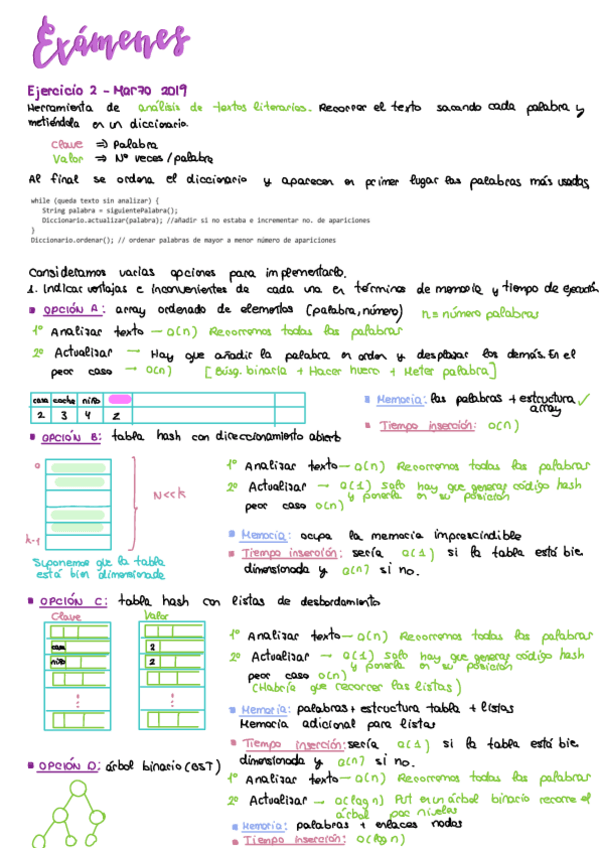 Exámenes
Ejercicio 2 - Marzo 2019
Herramienta de análisis de textos literarios. Recorrer el texto sacando cada palabra y
metiéndola en un diccionario.
Clave ⇒ Palabra
Valor ⇒ Nº veces / palabra
Al final se ordena el diccionario y aparecen en primer lugar las palabras más usadas
while (queda texto sin analizar) {
String palabra = siguientePalabra();
Diccionario.actualizar(palabra); //añadir si no estaba e incrementar no. de apariciones
}
Diccionario.ordenar(); // ordenar palabras de mayor a menor número de apariciones
Consideramos varias opciones para implementarlo.
1. Indicar ventajas e inconvenientes de cada una en términos de memoria y tiempo de ejecución
OPCIÓN A: array ordenado de elementos (palabra, número) n = número palabras
1º Analizar texto — O(n) Recorremos todas las palabras
2º Actualizar → Hay que añadir la palabra en orden y desplazar los demás. En el
peor caso → O(n) [Búsq. binaria + Hacer hueco + Meter palabra]
casa coche niño
2 3 4 2
Memoria: las palabras + estructura ✓
array
Tiempo inserción: O(n)
OPCIÓN B: tabla hash con direccionamiento abierto
0
N<<k
k-1
Suponemos que la tabla
está bien dimensionada
1º Analizar texto — O(n) Recorremos todas las palabras
2º Actualizar → O(1) Solo hay que generar código hash
y ponerla en su posición
peor caso O(n)
Memoria: ocupa la memoria imprescindible
Tiempo inserción: sería O(1) si la tabla está bie
dimensionada y O(n) si no.
OPCIÓN C: tabla hash con listas de desbordamiento
Clave Valor
casa 2
niño 2
1º Analizar texto — O(n) Recorremos todas las palabras
2º Actualizar → O(1) Solo hay que generar código hash
y ponerla en su posición
peor caso O(n)
(Habría que recorrer las listas)
Memoria: palabras + estructura tabla + listas
Memoria adicional para listas
Tiempo inserción: sería O(1) si la tabla está bie
dimensionada y O(n) si no.
OPCIÓN D: árbol binario (BST)
1º Analizar texto — O(n) Recorremos todas las palabras
2º Actualizar → O(log n) Put en un árbol binario recorre el
árbol por niveles
Memoria: palabras + enlaces nodos
Tiempo inserción: O(log n)